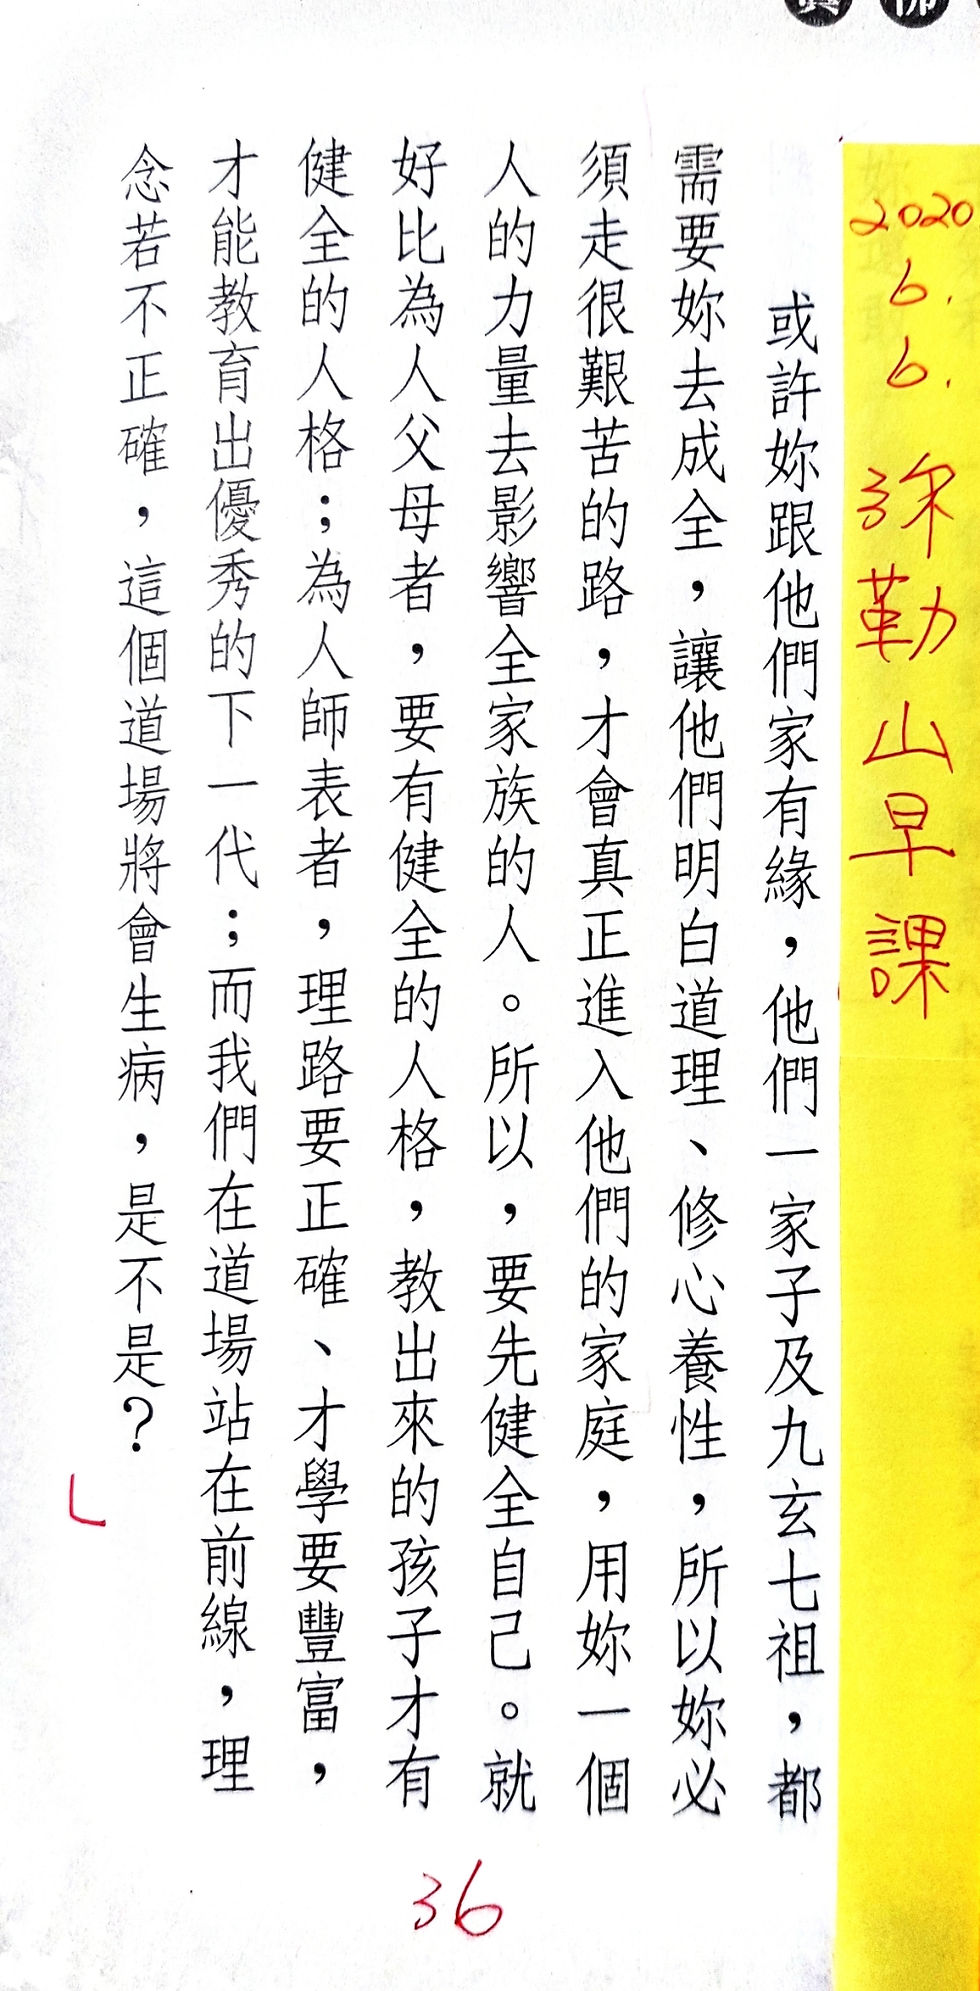 2020 6. 6. 弥勒山早課
或許妳跟他們家有緣，他們一家子及九玄七祖，都
需要妳去成全，讓他們明白道理、修心養性，所以妳必
須走很艱苦的路，才會真正進入他們的家庭，用妳一個
人的力量去影響全家族的人。所以，要先健全自己。就
好比為人父母者，要有健全的人格，教出來的孩子才有
健全的人格；為人師表者，理路要正確、才學要豐富，
才能教育出優秀的下一代；而我們在道場站在前線，理
念若不正確，這個道場將會生病，是不是？
36